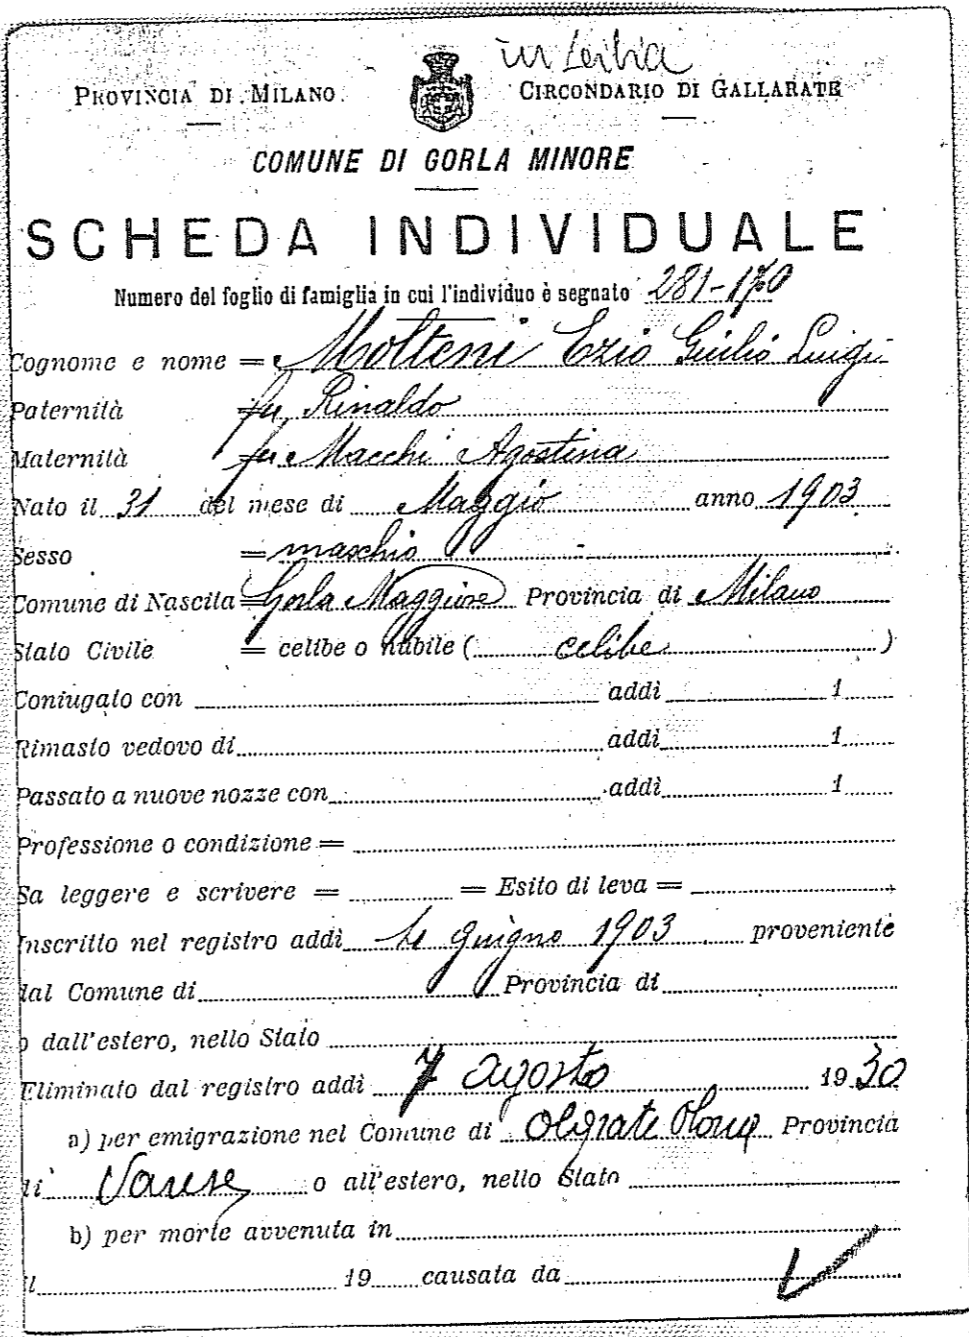 in
PROVINCIA DI MILANO CIRCONDARIO DI GALLARATE
COMUNE DI GORLA MINORE
SCHEDA INDIVIDUALE
Numero del foglio di famiglia in cui l'individuo è segnato 281-170
Cognome e nome = Molteni Ezio Giulio Luigi
Paternità fu Rinaldo
Maternità = fu Macchi Agostina
Nato il 31 del mese di Maggio anno 1903
Sesso = maschio
Comune di Nascita = Gorla Maggiore Provincia di Milano
Stato Civile = celibe o nubile ( celibe )
Coniugato con addì 1
Rimasto vedovo di addì 1
Passato a nuove nozze con addì 1
Professione o condizione =
Sa leggere e scrivere = = Esito di leva =
Inscritto nel registro addì giugno 1903 proveniente
dal Comune di Provincia di
o dall'estero, nello Stato
Eliminato dal registro addì 7 agosto 1930
a) per emigrazione nel Comune di Olgiate Olona Provincia
di Varese o all'estero, nello Stato
b) per morte avvenuta in
il 19 causata da